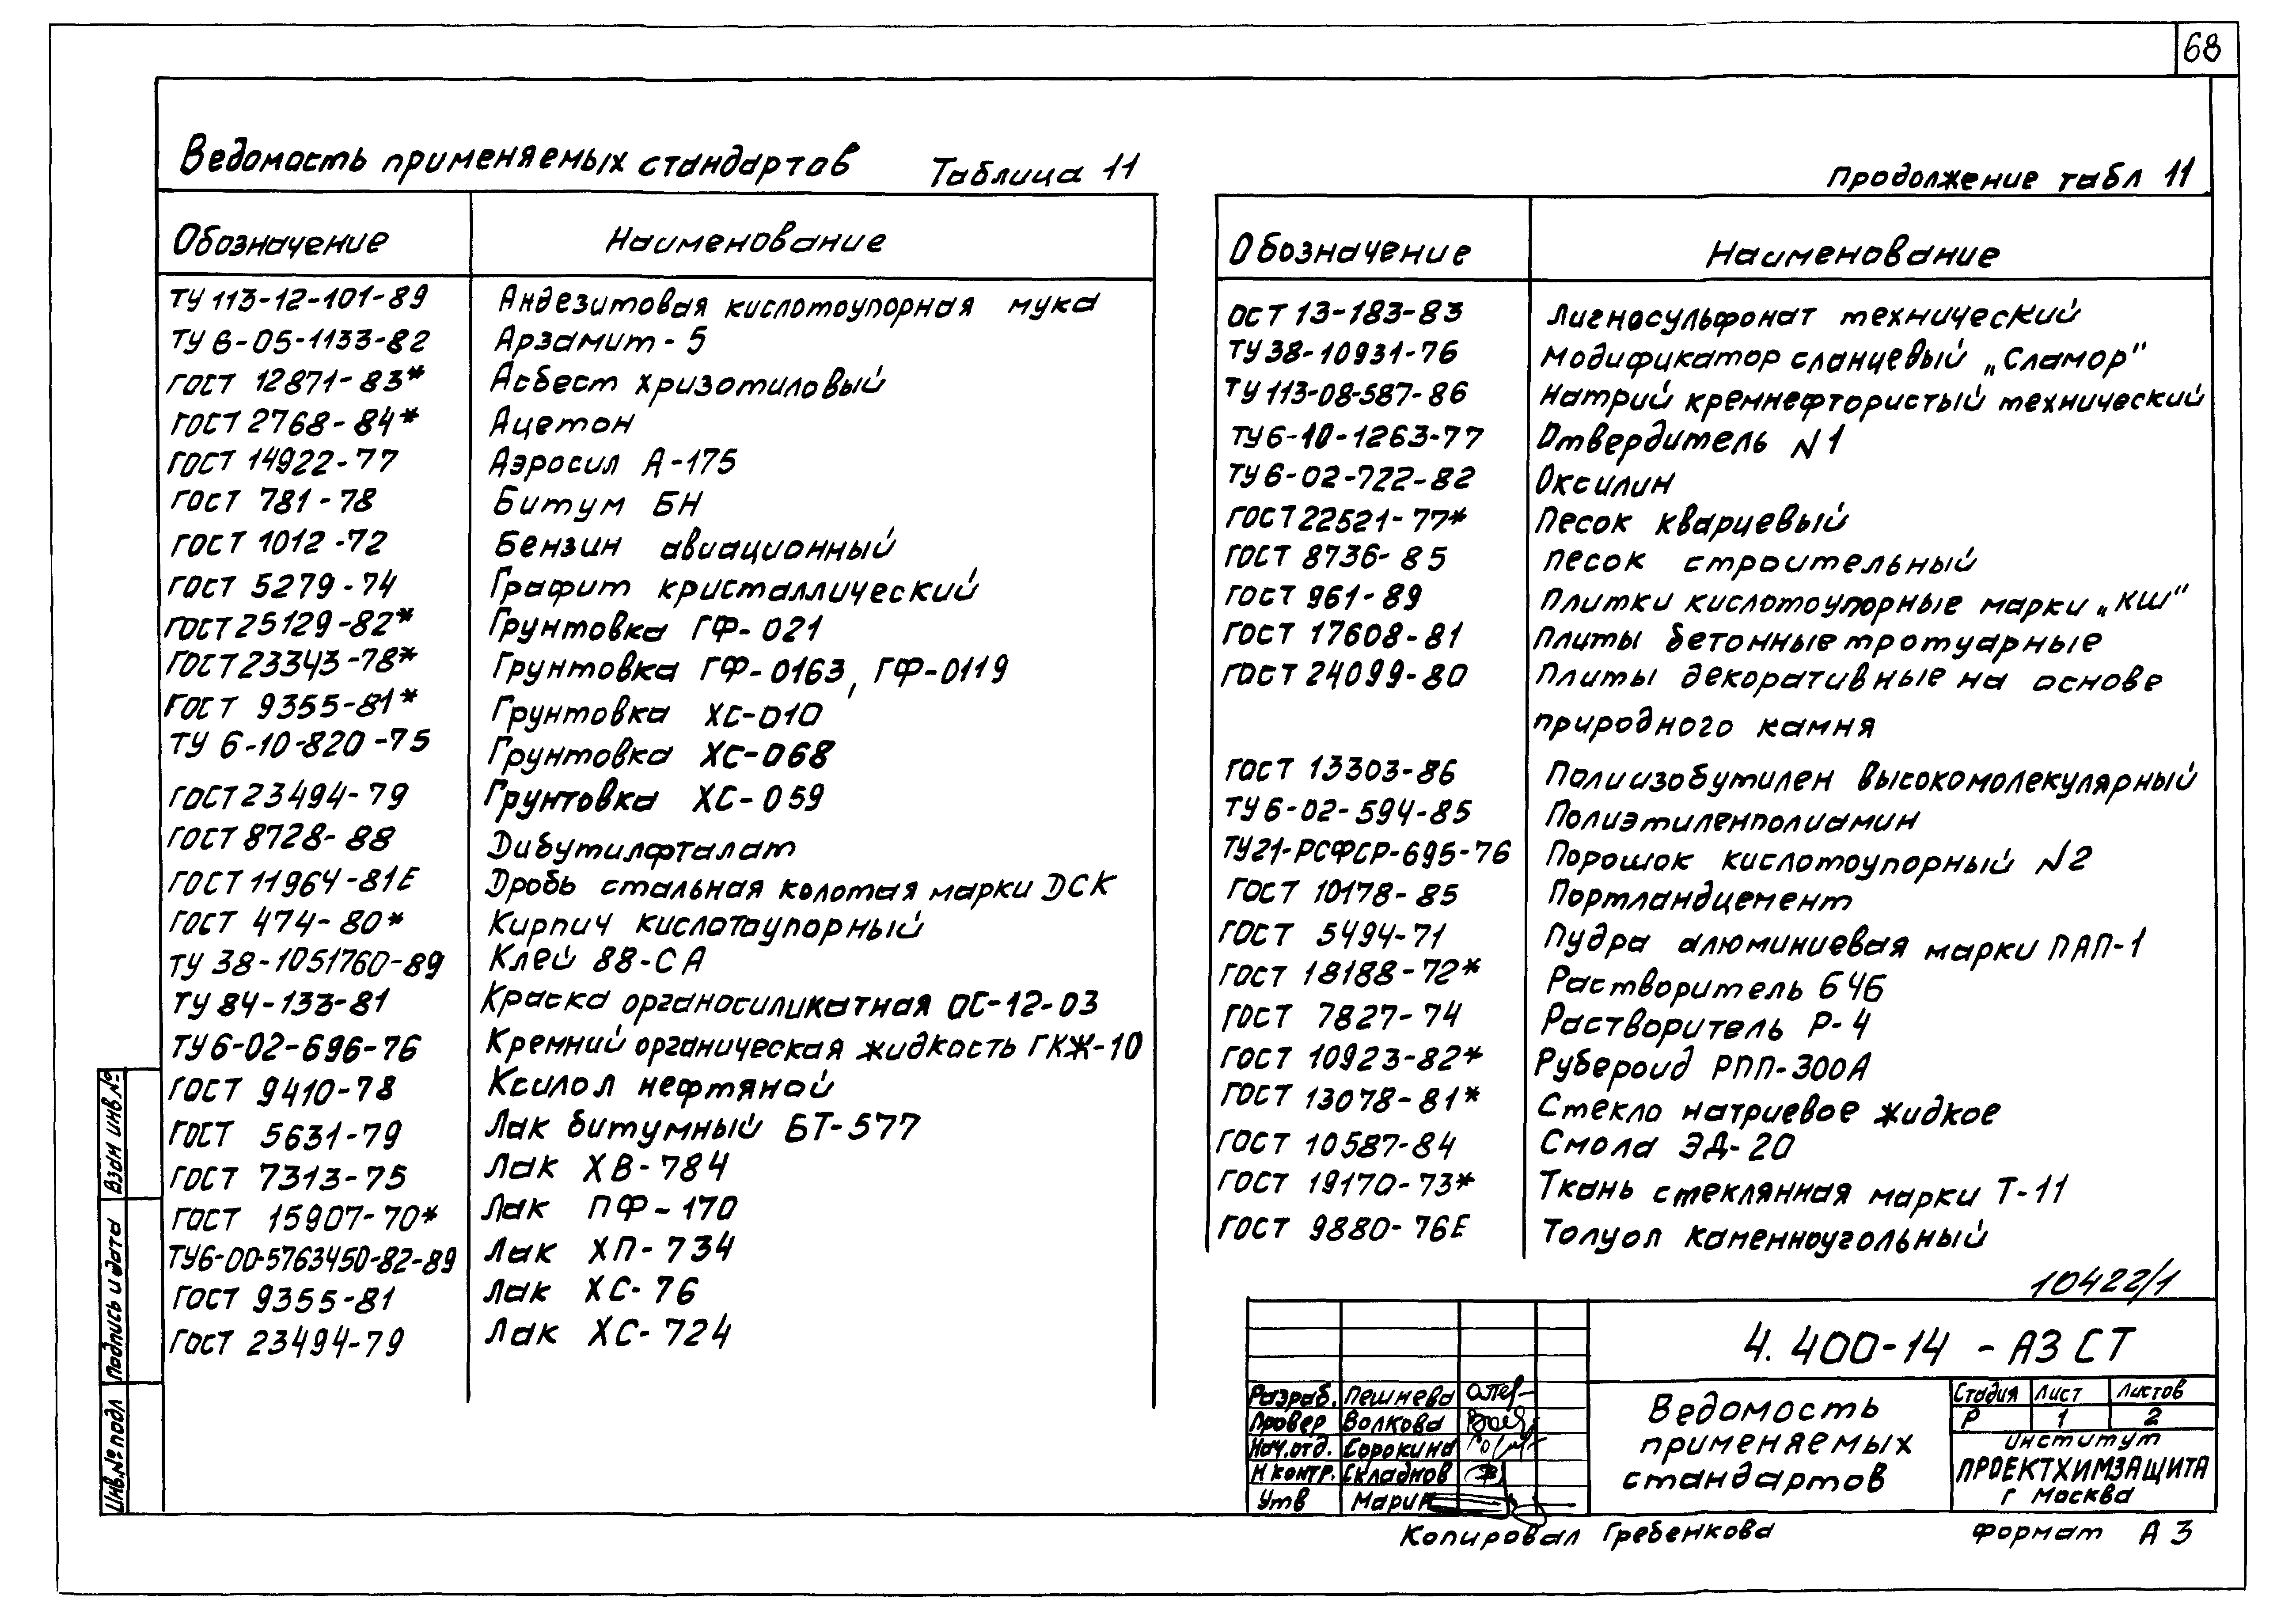 68
Ведомость применяемых стандартов Таблица 11
Обозначение Наименование
ТУ 113-12-101-89 Андезитовая кислотоупорная мука
ТУ 6-05-1133-82 Арзамит-5
ГОСТ 12871-83* Асбест хризотиловый
ГОСТ 2768-84* Ацетон
ГОСТ 14922-77 Аэросил А-175
ГОСТ 781-78 Битум БН
ГОСТ 1012-72 Бензин авиационный
ГОСТ 5279-74 Графит кристаллический
ГОСТ 25129-82* Грунтовка ГФ-021
ГОСТ 23343-78* Грунтовка ГФ-0163, ГФ-0119
ГОСТ 9355-81* Грунтовка ХС-010
ТУ 6-10-820-75 Грунтовка ХС-068
ГОСТ 23494-79 Грунтовка ХС-059
ГОСТ 8728-88 Дибутилфталат
ГОСТ 11964-81Е Дробь стальная колотая марки ДСК
ГОСТ 474-80* Кирпич кислотоупорный
ТУ 38-1051760-89 Клей 88-СА
ТУ 84-133-81 Краска органосиликатная ОС-12-03
ТУ 6-02-696-76 Кремний органическая жидкость ГКЖ-10
ГОСТ 9410-78 Ксилол нефтяной
ГОСТ 5631-79 Лак битумный БТ-577
ГОСТ 7313-75 Лак ХВ-784
ГОСТ 15907-70* Лак ПФ-170
ТУ6-00-5763450-82-89 Лак ХП-734
ГОСТ 9355-81 Лак ХС-76
ГОСТ 23494-79 Лак ХС-724
Продолжение табл 11
Обозначение Наименование
ОСТ 13-183-83 Лигносульфонат технический
ТУ 38-10931-76 Модификатор сланцевый „Сламор"
ТУ 113-08-587-86 Натрий кремнефтористый технический
ТУ 6-10-1263-77 Отвердитель N1
ТУ 6-02-722-82 Оксилин
ГОСТ 22521-77* Песок кварцевый
ГОСТ 8736-85 Песок строительный
ГОСТ 961-89 Плитки кислотоупорные марки „КШ"
ГОСТ 17608-81 Плиты бетонные тротуарные
ГОСТ 24099-80 Плиты декоративные на основе
природного камня
ГОСТ 13303-86 Полиизобутилен высокомолекулярный
ТУ 6-02-594-85 Полиэтиленполиамин
ТУ21-РСФСР-695-76 Порошок кислотоупорный N2
ГОСТ 10178-85 Портландцемент
ГОСТ 5494-71 Пудра алюминиевая марки ПАП-1
ГОСТ 18188-72* Растворитель 646
ГОСТ 7827-74 Растворитель Р-4
ГОСТ 10923-82* Рубероид РПП-300А
ГОСТ 13078-81* Стекло натриевое жидкое
ГОСТ 10587-84 Смола ЭД-20
ГОСТ 19170-73* Ткань стеклянная марки Т-11
ГОСТ 9880-76Е Толуол каменноугольный
10422/1
4.400-14 - АЗ СТ
Разраб. Пешнева
Провер Волкова
Нач.отд. Сорокина
Н контр. Складнов
Утв Марин
Ведомость
применяемых
стандартов
Стадия Лист Листов
Р 1 2
институт
ПРОЕКТХИМЗАЩИТА
г Москва
Копировал Гребенкова Формат А3
Взам инв №
Подпись и дата
Инв.№ подл